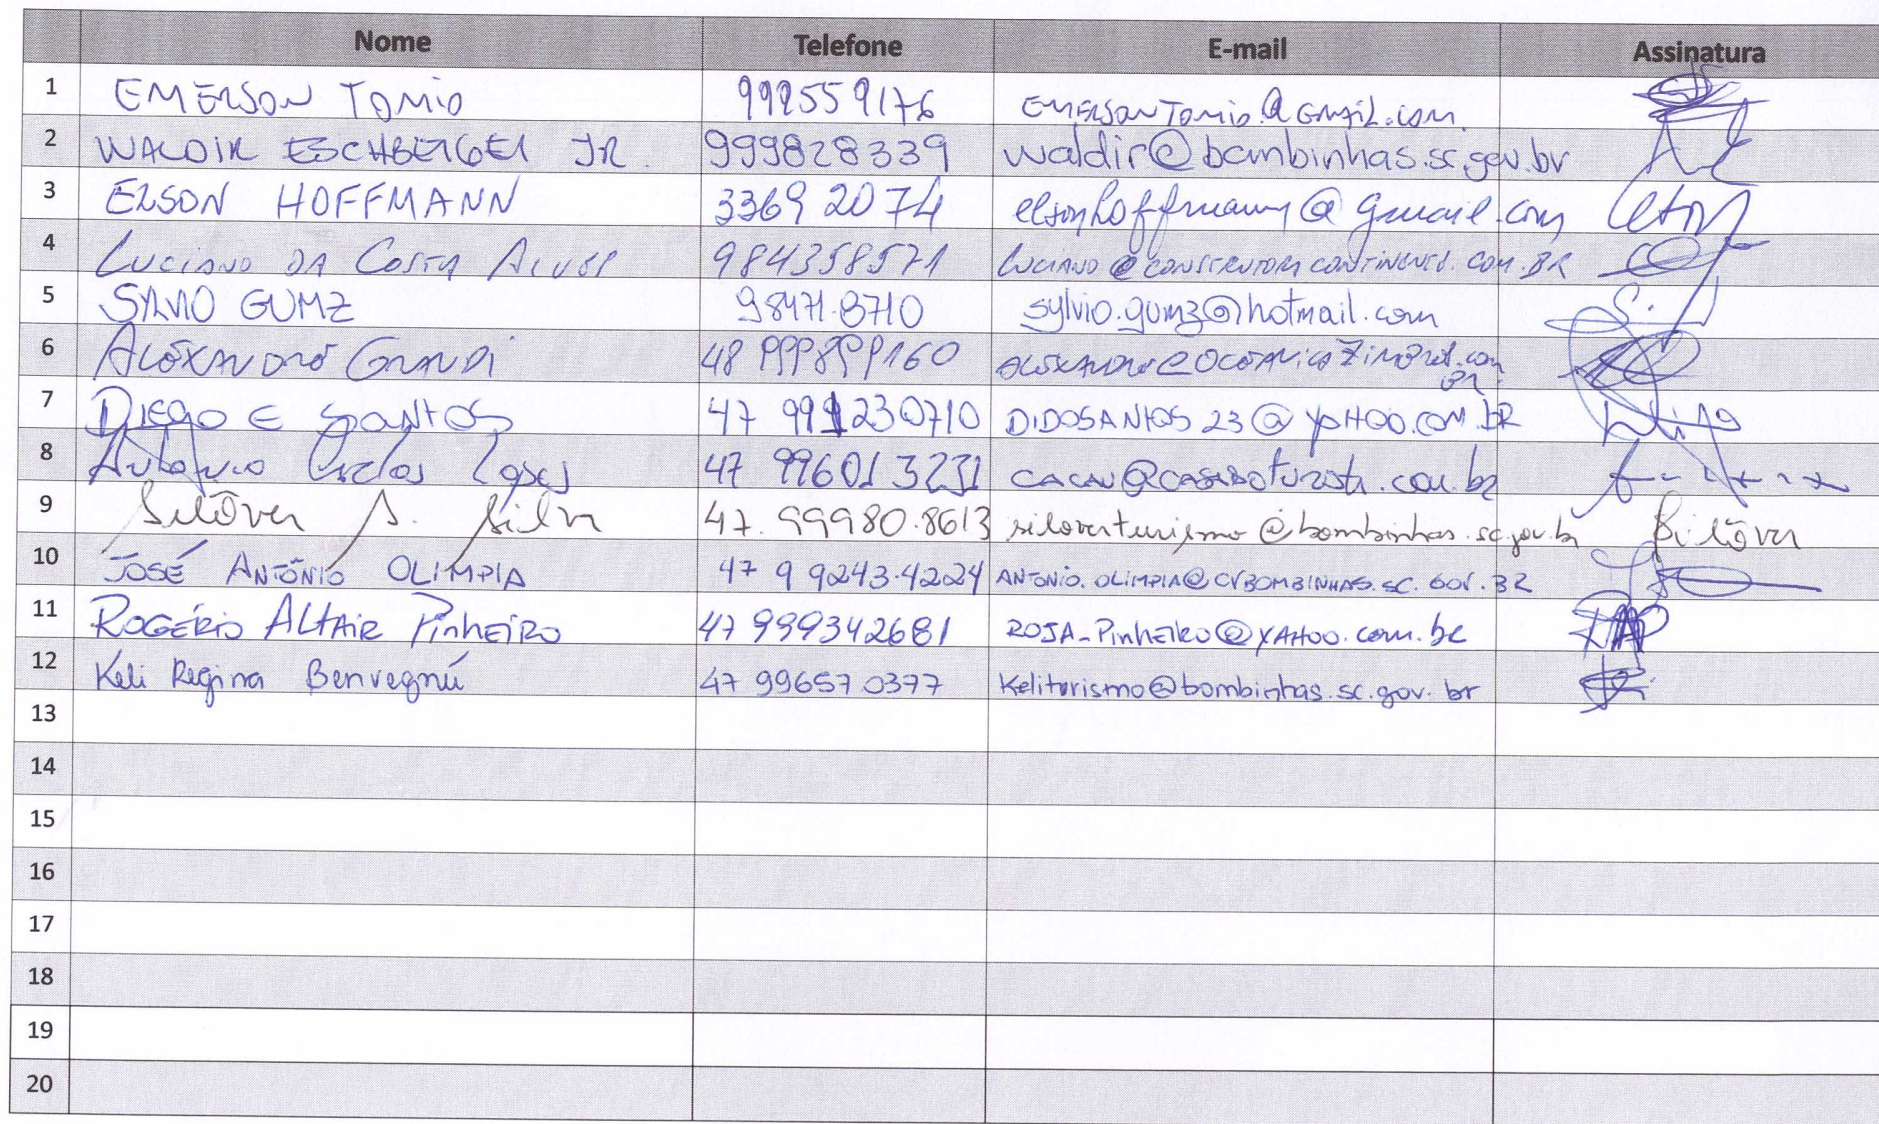 Nome Telefone E-mail Assinatura
1 EMERSON TOMIO 999559176 EMERSONTOMIO.@GMAIL.COM.
2 WALDIR ESCHBERGER JR. 999828339 waldir@bombinhas.sc.gov.br
3 ELSON HOFFMANN 3369 2074 elsonhoffmann@gmail.com
4 Luciano DA Costa Alves 984358571
5 SYLVIO GUMZ 98471-8710 sylvio.gumz@hotmail.com
6 Alexandre Grandi 48 999899160
7 DIEGO E SANTOS 47 991230710 DIDOSANTOS23@YAHOO.COM.BR
8 Antonio Carlos Lopes 47 996013231
9 Silõver S. Silva 47.99980.8613 siloverturismo@bombinhas.sc.gov.br Silõver
10 JOSÉ ANTÔNIO OLIMPIA 47 9 9243.4224 ANTONIO.OLIMPIA@CVBOMBINHAS.SC.GOV.BR
11 ROGÉRIO ALTAIR PINHEIRO 47 999342681 ROJA_PINHEIRO@YAHOO.com.br
12 Keli Regina Benvegnú 47 996570377 Keliturismo@bombinhas.sc.gov.br
13
14
15
16
17
18
19
20